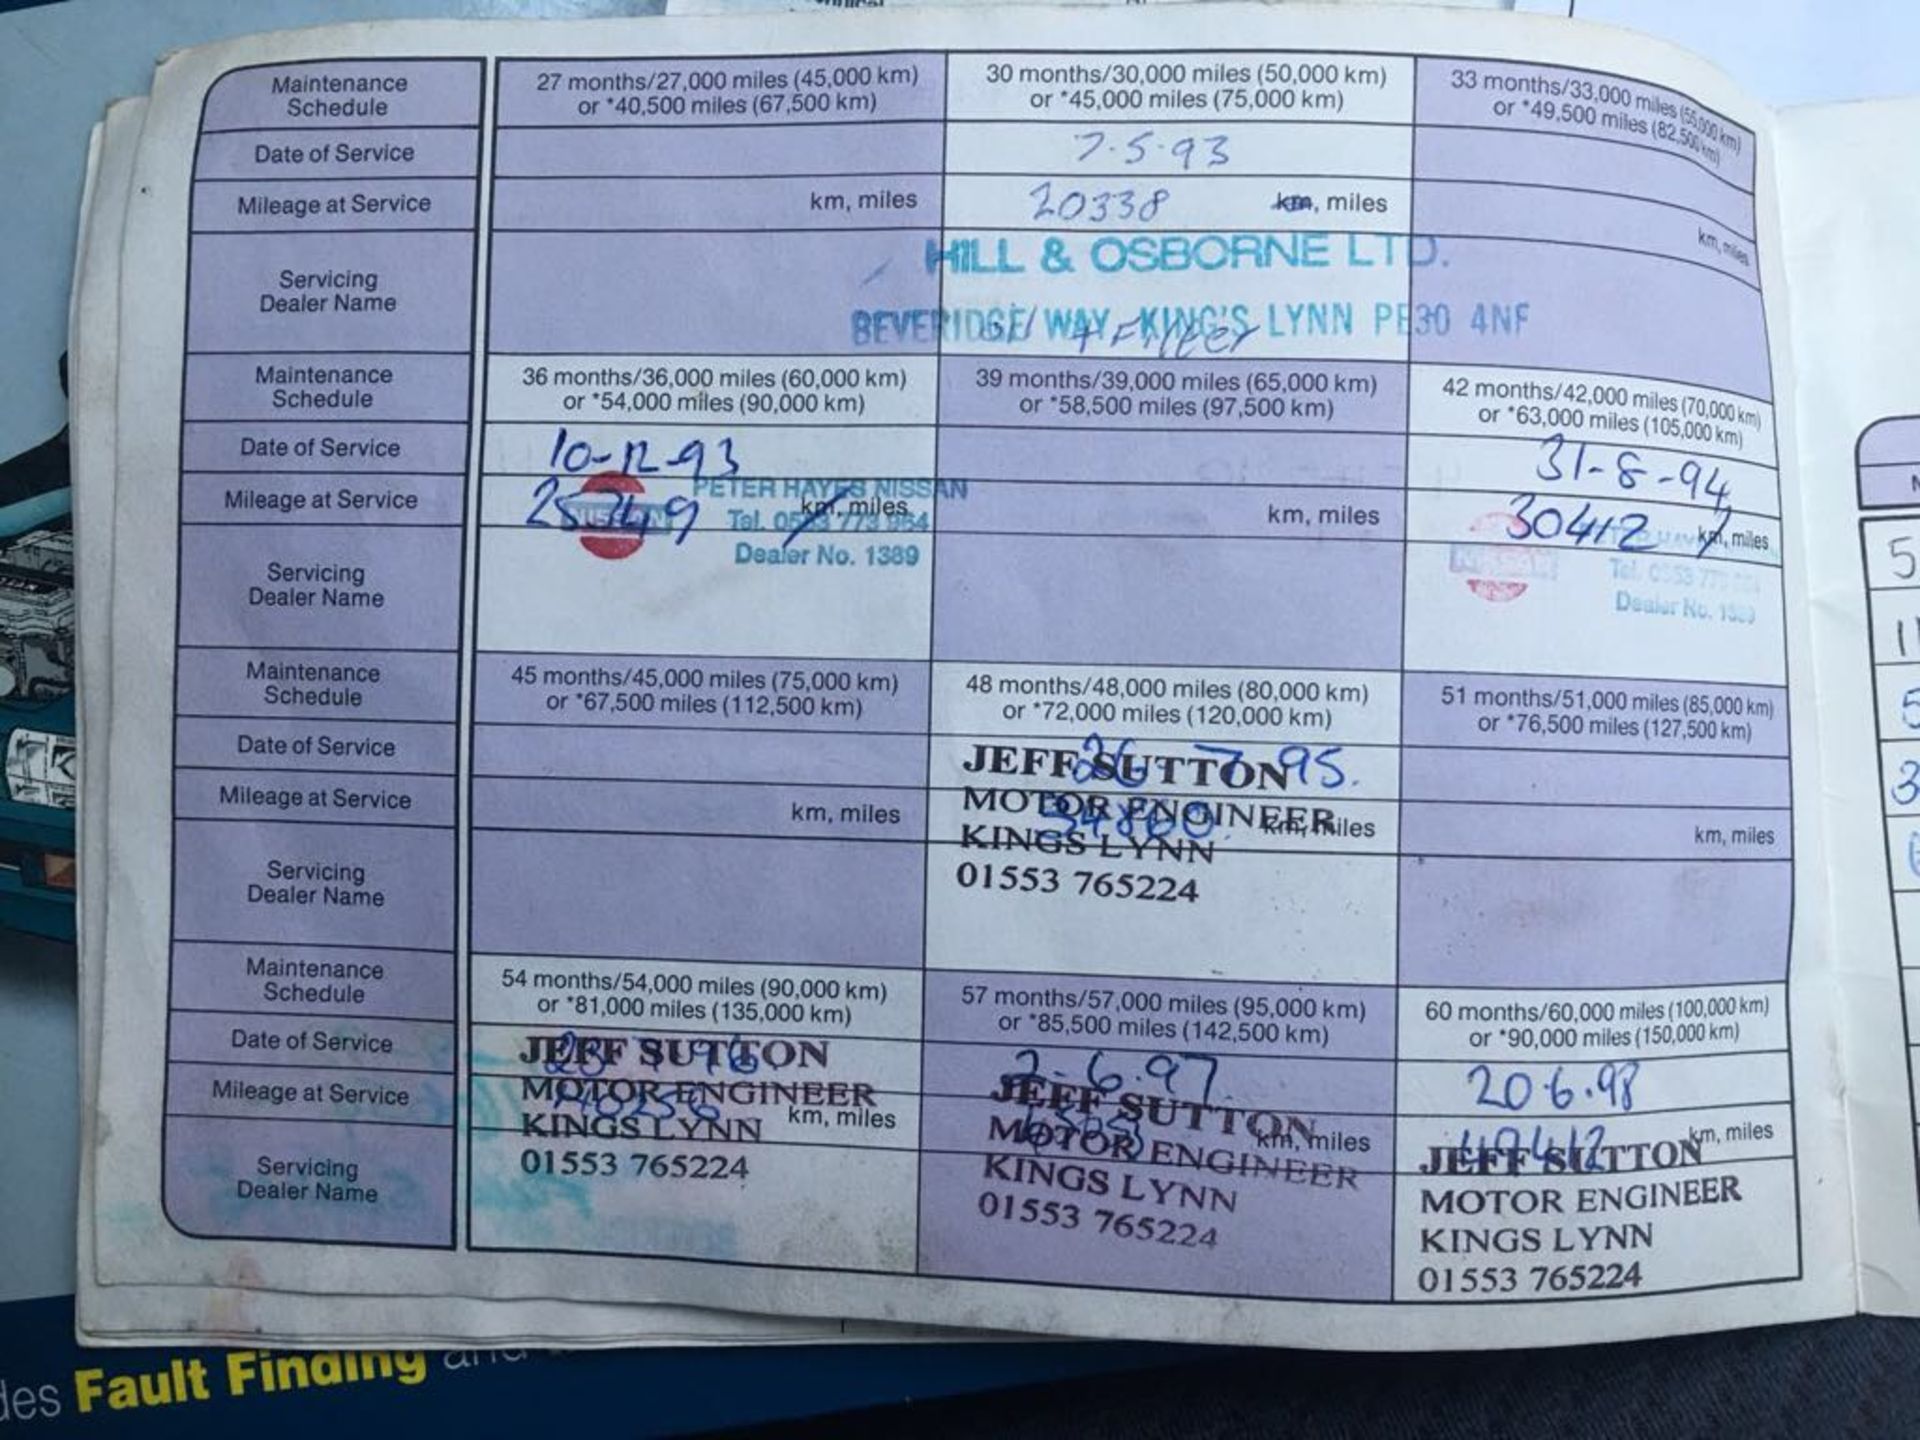 Maintenance
Schedule
27 months/27,000 miles (45,000 km)
or *40,500 miles (67,500 km)
30 months/30,000 miles (50,000 km)
or *45,000 miles (75,000 km)
33 months/33,000 miles (55,000 km)
or *49,500 miles (82,500 km)
Date of Service
7.5.93
Mileage at Service
km, miles
20338 km, miles
km, miles
Servicing
Dealer Name
HILL & OSBORNE LTD.
BEVERIDGE WAY, KING'S LYNN PE30 4NF
+ Filter
Maintenance
Schedule
36 months/36,000 miles (60,000 km)
or *54,000 miles (90,000 km)
39 months/39,000 miles (65,000 km)
or *58,500 miles (97,500 km)
42 months/42,000 miles (70,000 km)
or *63,000 miles (105,000 km)
Date of Service
10-12-93
31-8-94
Mileage at Service
25749 km, miles
km, miles
30412 km, miles
Servicing
Dealer Name
NISSAN
PETER HAYES NISSAN
Tel. 0553 773 864
Dealer No. 1389
NISSAN
Tel. 0553
Dealer No.
Maintenance
Schedule
45 months/45,000 miles (75,000 km)
or *67,500 miles (112,500 km)
48 months/48,000 miles (80,000 km)
or *72,000 miles (120,000 km)
51 months/51,000 miles (85,000 km)
or *76,500 miles (127,500 km)
Date of Service
26 7 95.
Mileage at Service
km, miles
34800 km, miles
km, miles
Servicing
Dealer Name
JEFF SUTTON
MOTOR ENGINEER
KINGS LYNN
01553 765224
Maintenance
Schedule
54 months/54,000 miles (90,000 km)
or *81,000 miles (135,000 km)
57 months/57,000 miles (95,000 km)
or *85,500 miles (142,500 km)
60 months/60,000 miles (100,000 km)
or *90,000 miles (150,000 km)
Date of Service
2-6.97
20.6.98
Mileage at Service
km, miles
km, miles
49412 km, miles
Servicing
Dealer Name
JEFF SUTTON
MOTOR ENGINEER
KINGS LYNN
01553 765224
JEFF SUTTON
MOTOR ENGINEER
KINGS LYNN
01553 765224
JEFF SUTTON
MOTOR ENGINEER
KINGS LYNN
01553 765224
Fault Finding and